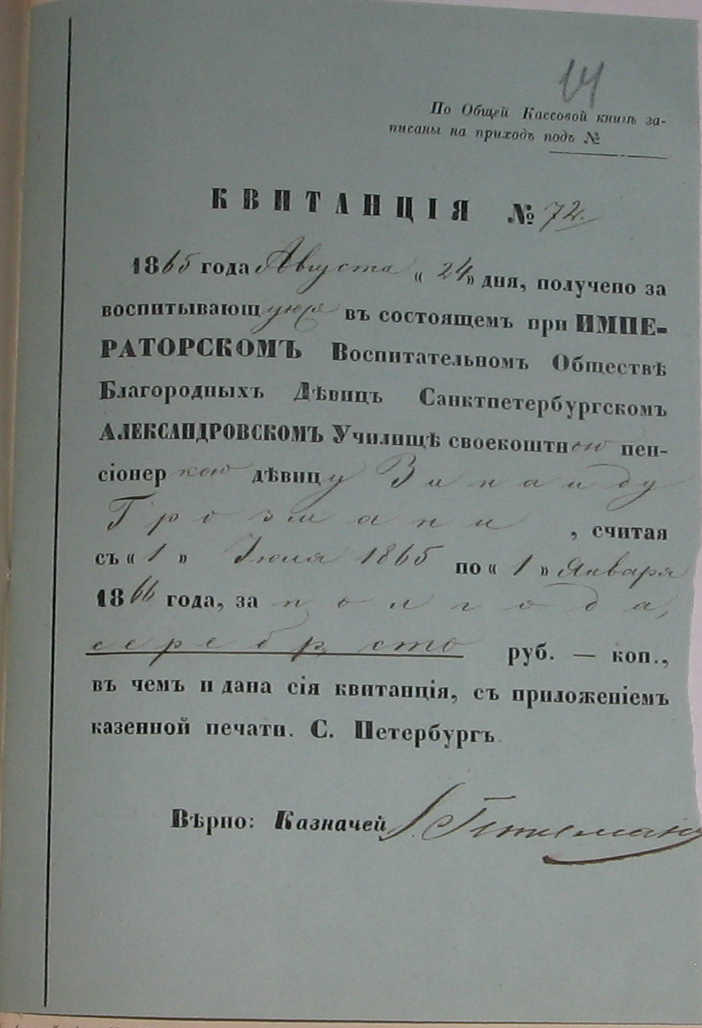 14
По Общей Кассовой книгѣ за-
писаны на приходъ подъ №
КВИТАНЦІЯ № 72.
1865 года Августа „ 24 „ дня, получено за
воспитывающуюся въ состоящемъ при ИМПЕ-
РАТОРСКОМЪ Воспитательномъ Обществѣ
Благородныхъ Дѣвицъ Санктпетербургскомъ
АЛЕКСАНДРОВСКОМЪ Училищѣ своекоштною пен-
сіонеркою дѣвицу Зинаиду
Грозмани , считая
съ „ 1 „ Іюля 1865 по „ 1 „ Января
1866 года, за полгода,
серебр. сто руб. — коп.,
въ чемъ и дана сія квитанція, съ приложеніемъ
казенной печати. С. Петербургъ
Вѣрно: Казначей